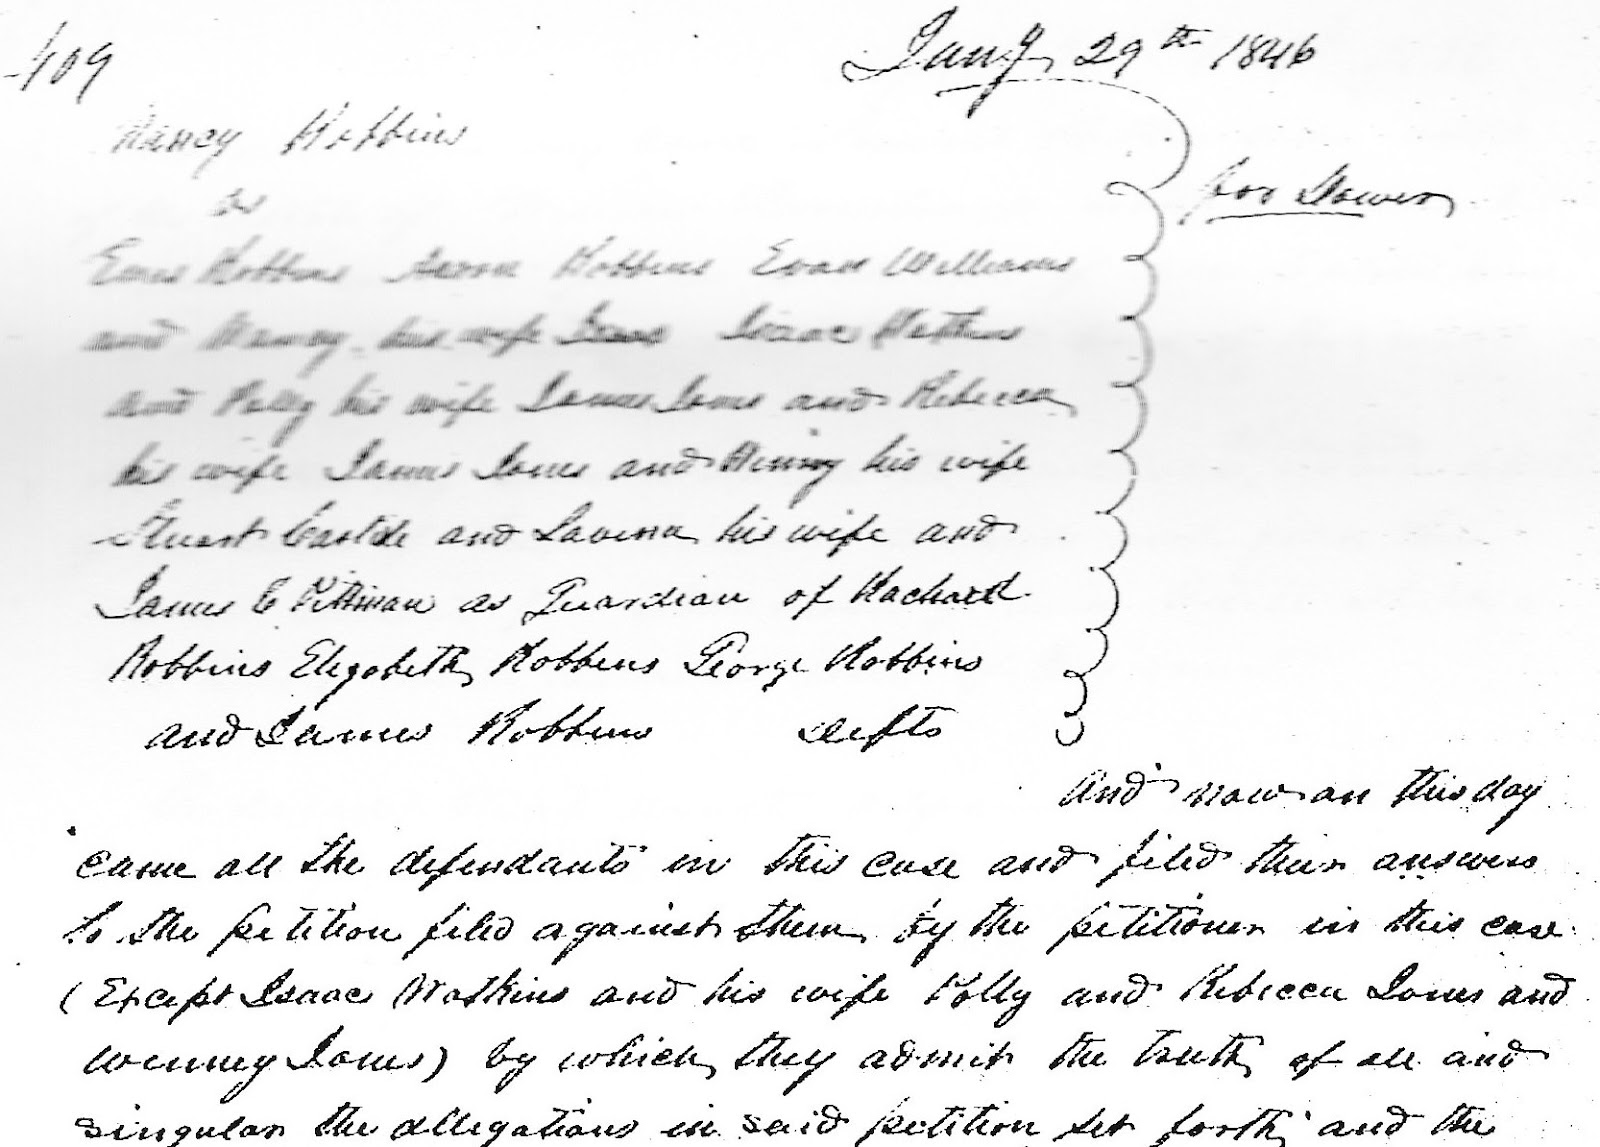 409
Jany 29th 1846
Nancy Robbins
vs
for Dower
Enos Robbins Aaron Robbins Evan Williams
and Nancy his wife Isaac Isaac Watkins
and Polly his wife James Jones and Rebecca
his wife James Jones and Winny his wife
Stuart Castile and Lavina his wife and
James C Pittman as Guardian of
Robbins Elizabeth Robbins George Robbins
and James Robbins Defts
And now on this day
came all the defendants in this case and filed their answers
to the petition filed against them by the petitioner in this case
(Except Isaac Watkins and his wife Polly and Rebecca Jones and
Winney Jones) by which they admit the truth of all and
singular the allegations in said petition set forth and the